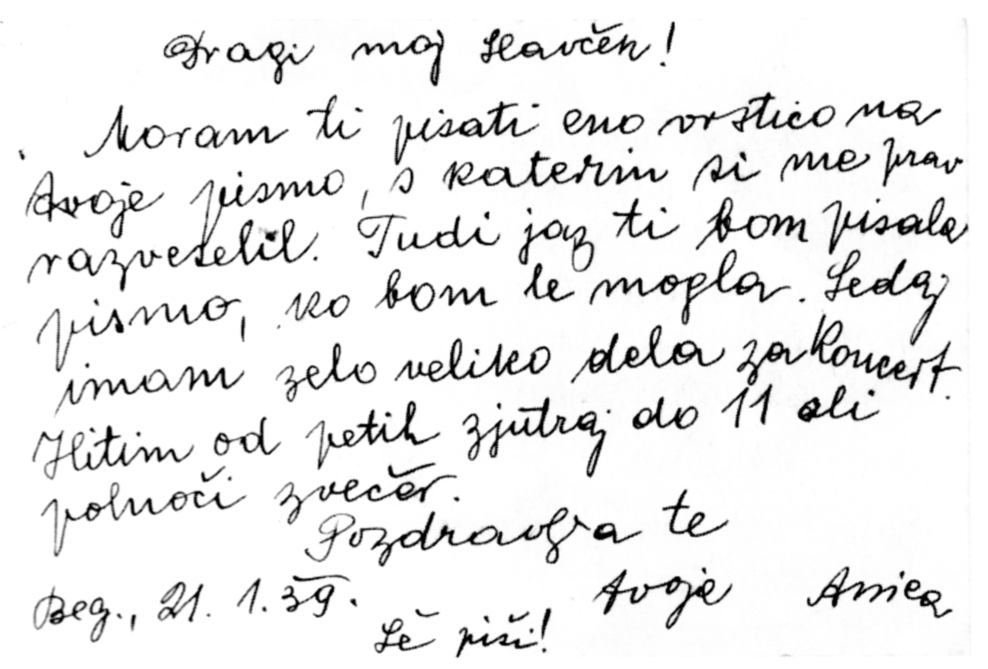 Dragi moj Slavček!
Moram ti pisati eno vrstico na
tvoje pismo, s katerim si me prav
razveselil. Tudi jaz ti bom pisala
pismo, ko bom le mogla. Sedaj
imam zelo veliko dela za koncert.
Hitim od petih zjutraj do 11 ali
polnoči zvečer.
Pozdravlja te
Beg., 21. 1. 39. tvoja Anica
Še piši!